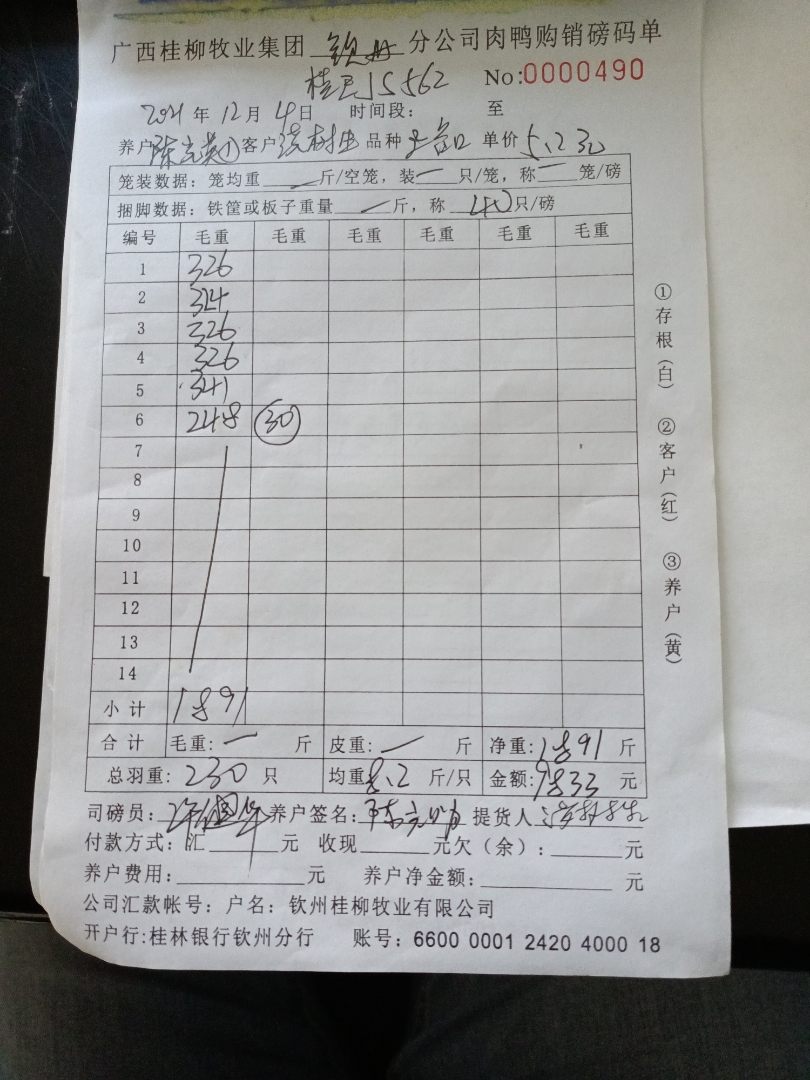 广西桂柳牧业集团 钦州 分公司肉鸭购销磅码单
15562 No:0000490
2021年12月4日 时间段: 至
养户 陈 ① 客户 品种 单价 5.2元
笼装数据:笼均重 — 斤/空笼,装 — 只/笼,称 — 笼/磅
捆脚数据:铁筐或板子重量 — 斤,称 40 只/磅
编号 毛重 毛重 毛重 毛重 毛重 毛重
1 326
2 324
3 326
4 326
5 341
6 248 30
7
8
9
10
11
12
13
14
小计 1891
合计 毛重: — 斤 皮重: — 斤 净重: 1891 斤
总羽重: 230 只 均重 8.2 斤/只 金额: 9833 元
司磅员: 养户签名: 陈 提货人
付款方式:汇 元 收现 元欠(余): 元
养户费用: 元 养户净金额: 元
公司汇款帐号: 户名: 钦州桂柳牧业有限公司
开户行:桂林银行钦州分行 账号: 6600 0001 2420 4000 18
①存根(白) ②客户(红) ③养户(黄)